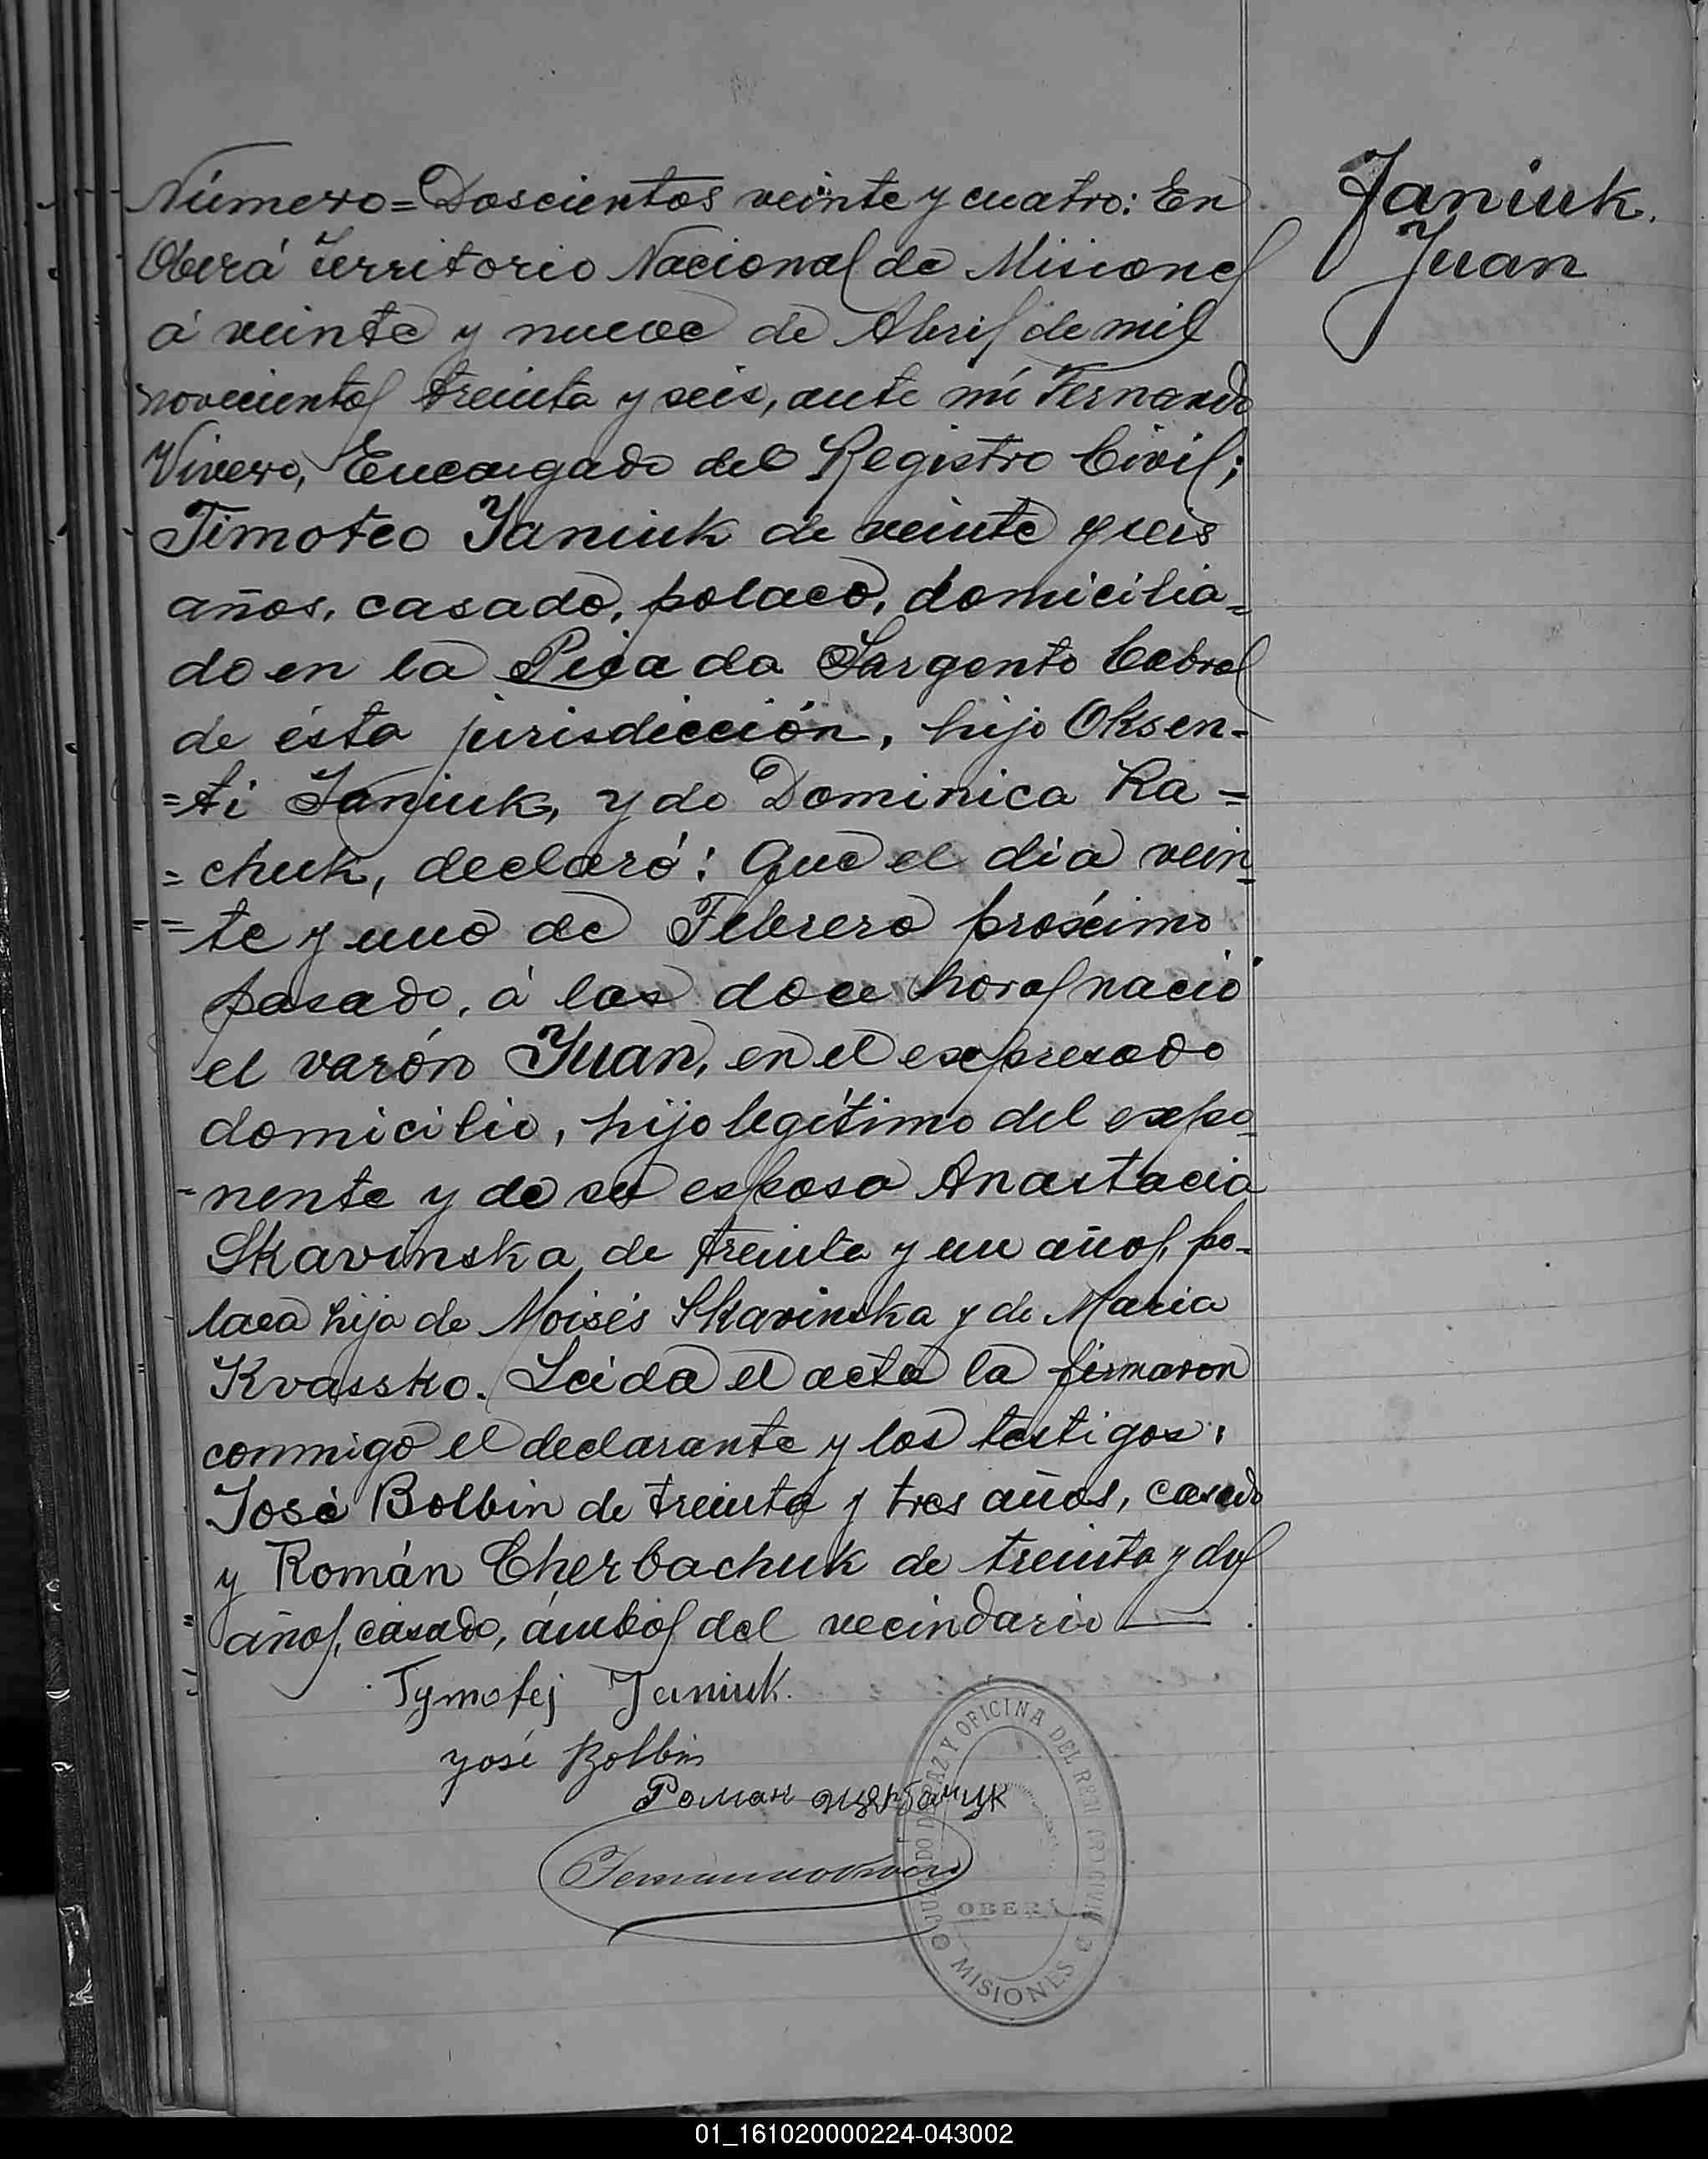 Número=Doscientos veinte y cuatro: En
Oberá Territorio Nacional de Misiones
á veinte y nueve de Abril de mil
novecientos treinta y seis, ante mí Fernando
Vivero, Encargado del Registro Civil;
Timoteo Janiuk de veinte y seis
años, casado, polaco, domicilia=
do en la Picada Sargento Cabral
de ésta jurisdicción, hijo Oksen-
=ti Janiuk, y de Dominica Ra=
=chuk, declaró: Que el día vein
=te y uno de Febrero próximo
pasado, á las doce horas nació
el varón Juan, en el expresado
domicilio, hijo legítimo del expo
-nente y de su esposa Anastacia
Skavinska, de treinta y un años, po-
laca hija de Moisés Skavinska y de Maria
Kvassko. Leida el acta la firmaron
conmigo el declarante y los testigos:
José Bolbin de treinta y tres años, casado
y Román Cherbachuk de treinta y dos
años, casado, ámbos del vecindario
Janiuk.
Juan
Tymofej Janiuk.
José Bolbin
Роман Щербачук
JUZGADO DE PAZ Y OFICINA DEL REGISTRO CIVIL
OBERÁ
MISIONES
01_161020000224-043002